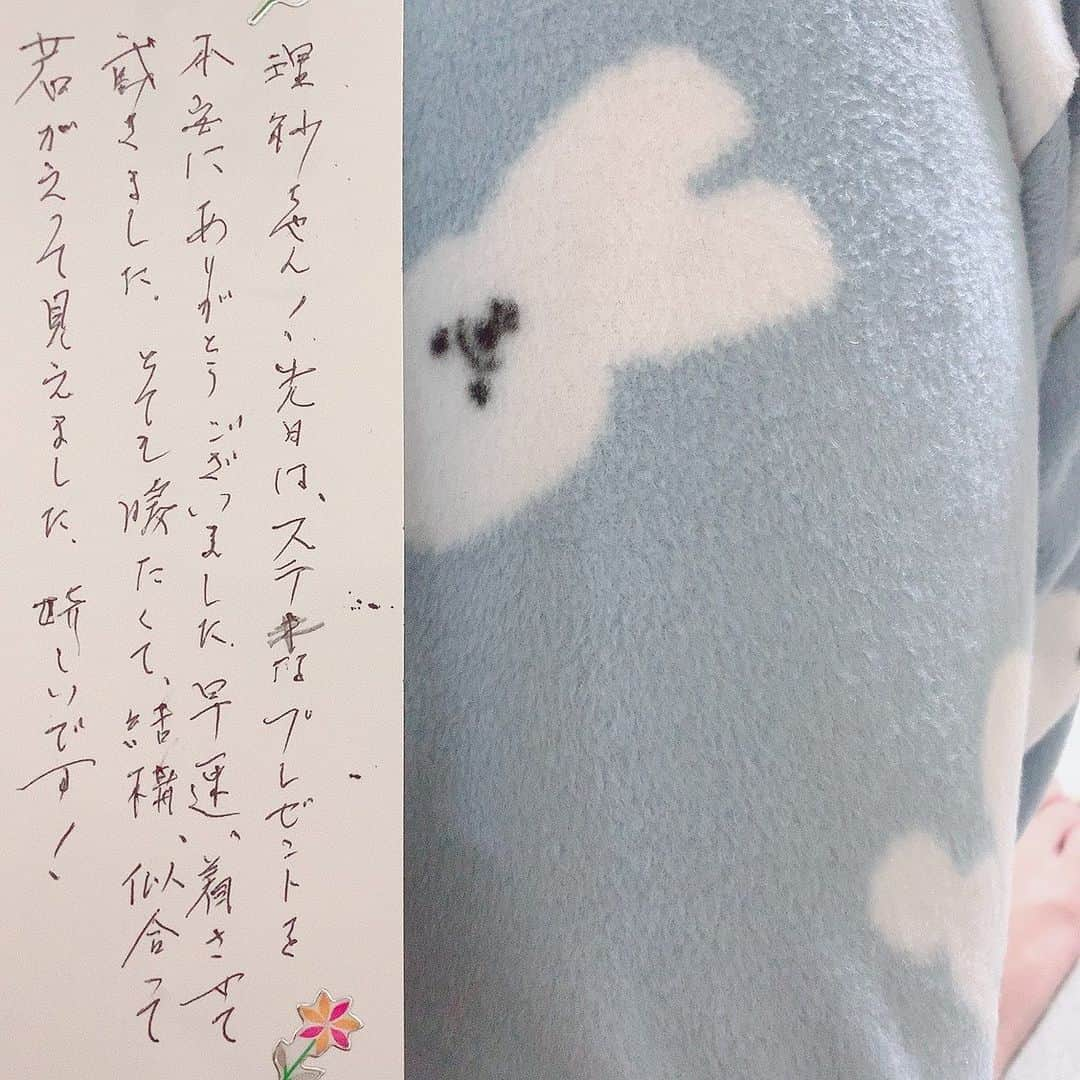 理紗ちゃん！、先日は、ステキなプレゼントを
本当にありがとうございました。早速、着させて
戴きました。とても暖たくて、結構、似合って
若がえって見えました。嬉しいです！